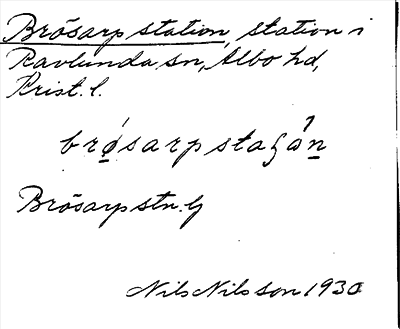 Brösarp station, station i
Ravlunda sn, Albo hd,
Krist. l.
Brösarp stn.
Nils Nilsson 1930